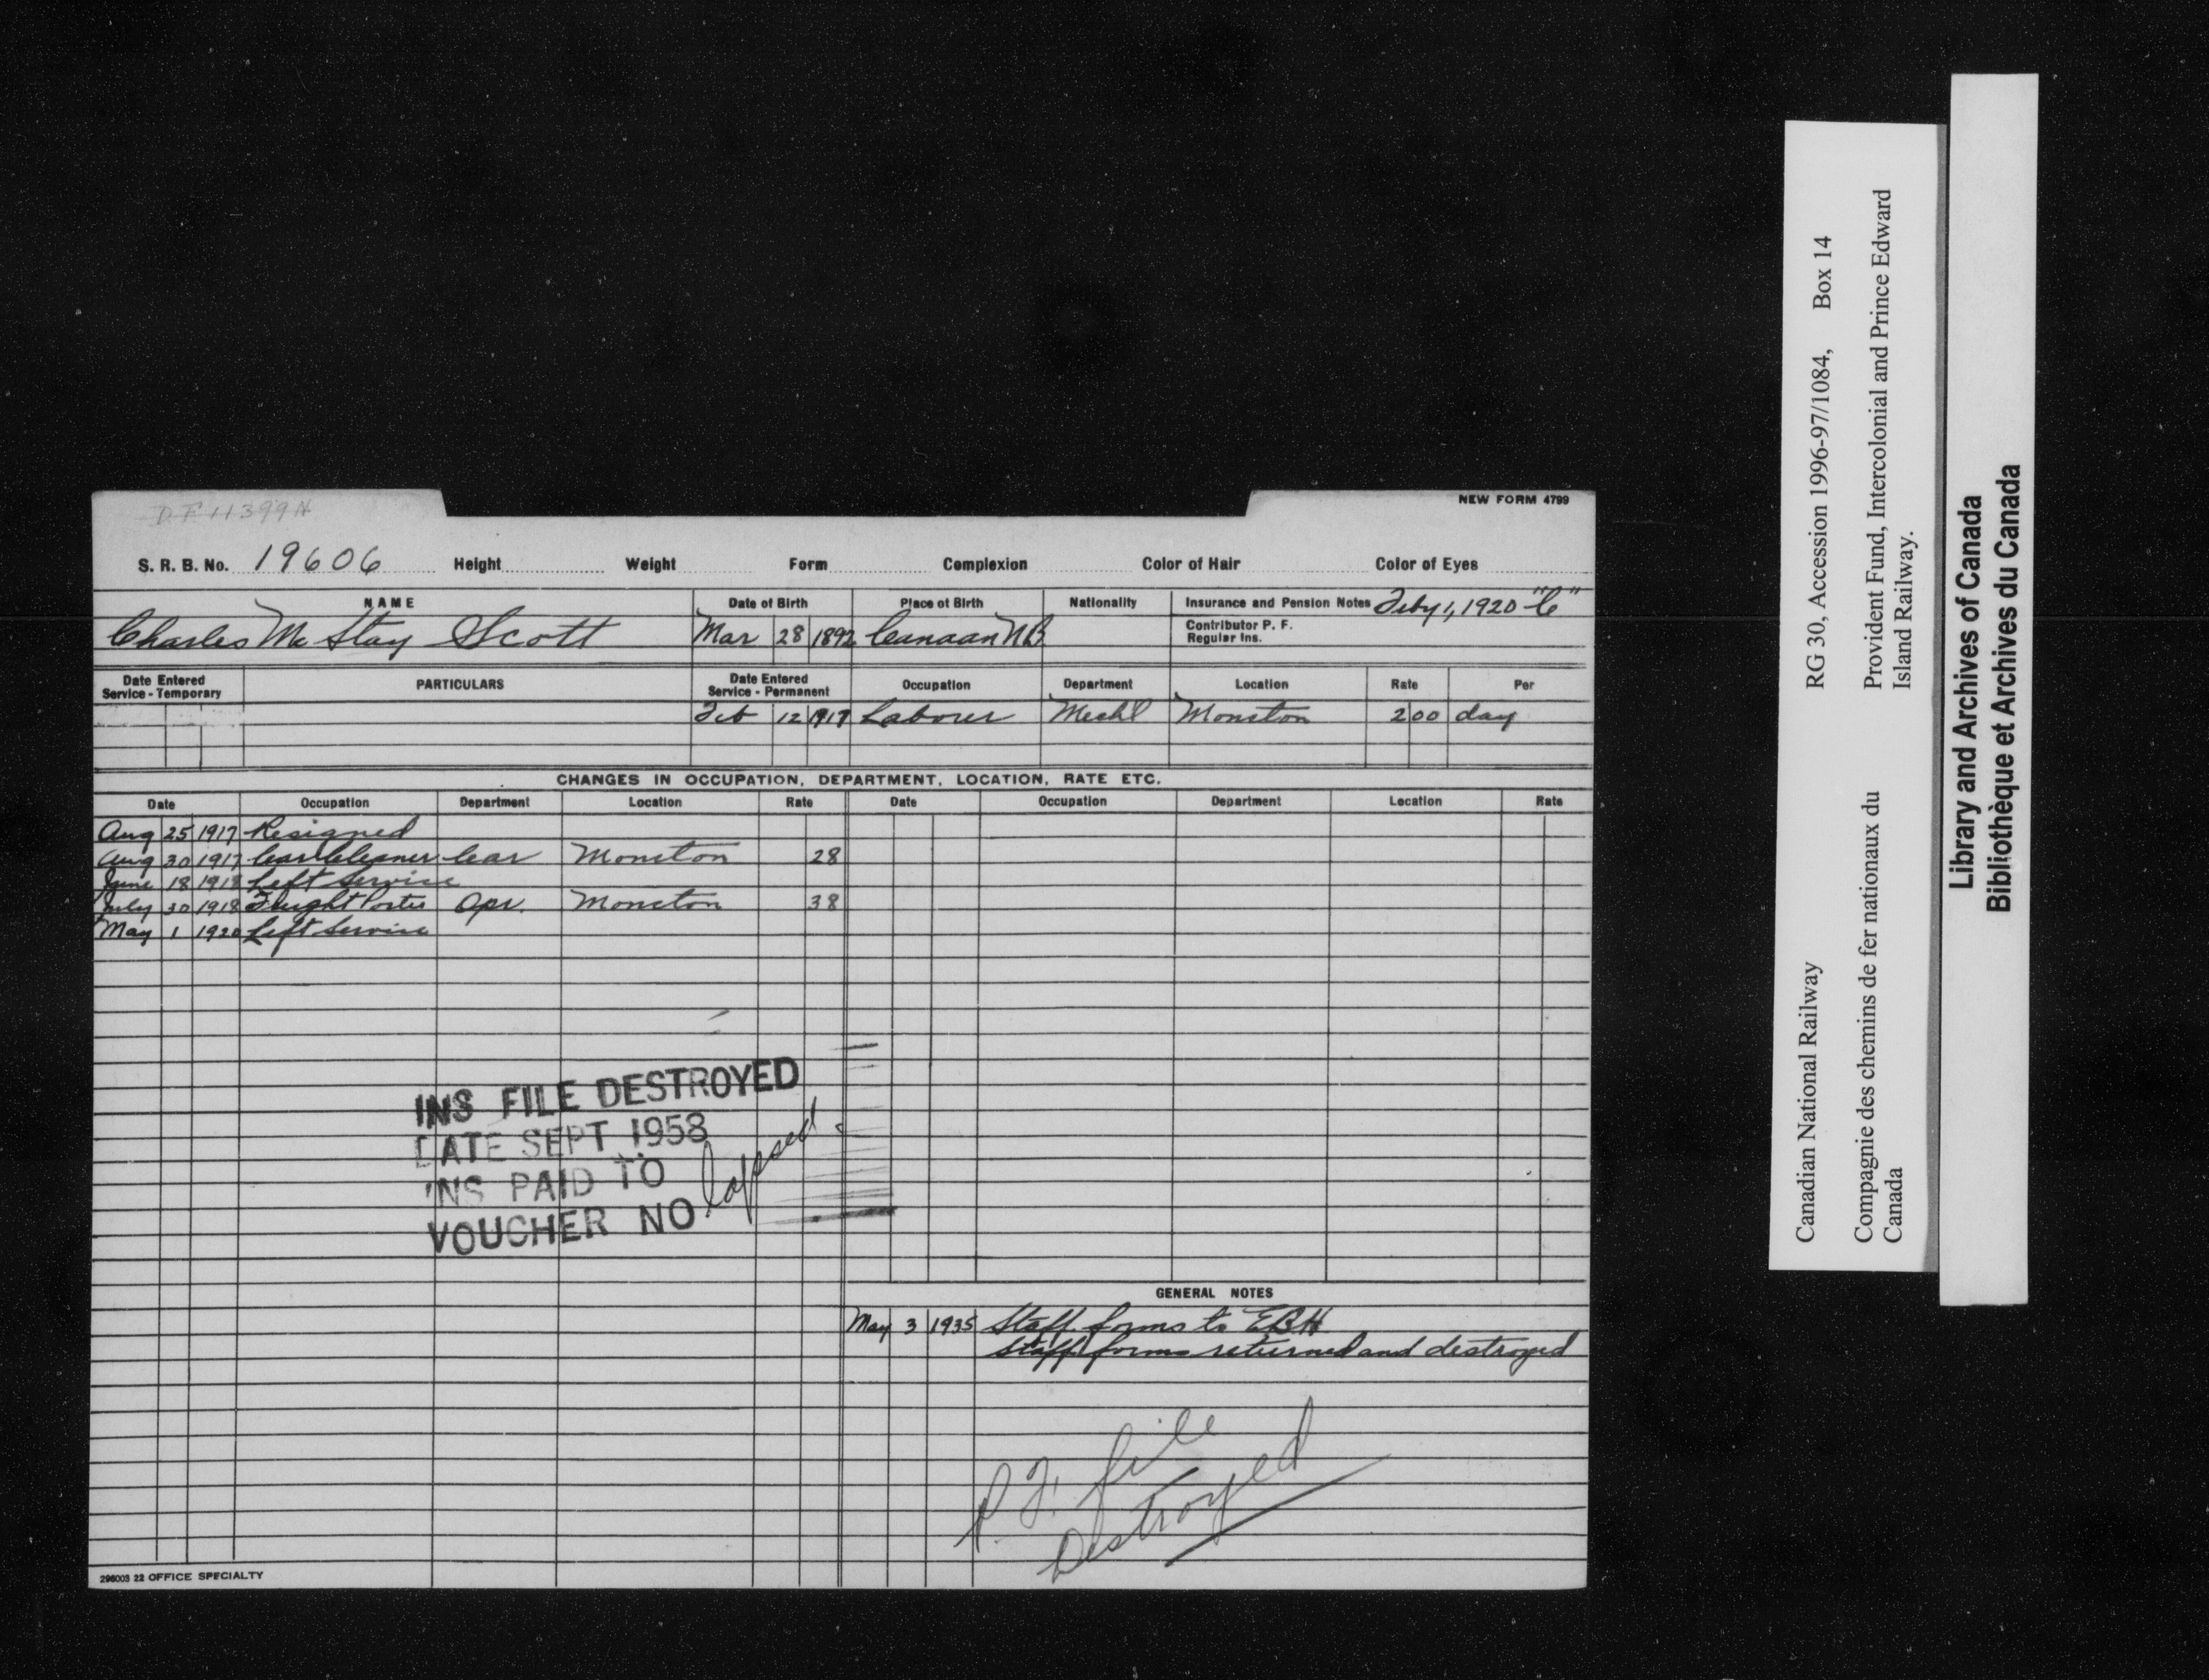 D.F. 11399N
NEW FORM 4799
S. R. B. No. 19606 Height Weight Form Complexion Color of Hair Color of Eyes
NAME Date of Birth Place of Birth Nationality Insurance and Pension Notes Feby 1, 1920 "C"
Contributor P. F.
Regular Ins.
Charles McStay Scott Mar 28 1892 Canaan N.B.
Date Entered Service - Temporary PARTICULARS Date Entered Service - Permanent Occupation Department Location Rate Per
Feb 12 1917 Labourer Mechl Moncton 2 00 day
CHANGES IN OCCUPATION, DEPARTMENT, LOCATION, RATE ETC.
Date Occupation Department Location Rate Date Occupation Department Location Rate
Aug 25 1917 Resigned
Aug 30 1917 Car Cleaner Car Moncton 28
June 18 1918 Left Service
July 30 1918 Freight Porter Opr. Moncton 38
May 1 1920 Left Service
INS FILE DESTROYED
DATE SEPT 1958
INS PAID TO
VOUCHER NO lapsed
GENERAL NOTES
May 3 1935 Staff forms to EBH
Staff forms returned and destroyed
P.F. file
Destroyed
296003 22 OFFICE SPECIALTY
Canadian National Railway RG 30, Accession 1996-97/1084, Box 14
Compagnie des chemins de fer nationaux du Canada
Provident Fund, Intercolonial and Prince Edward Island Railway.
Library and Archives of Canada
Bibliothèque et Archives du Canada